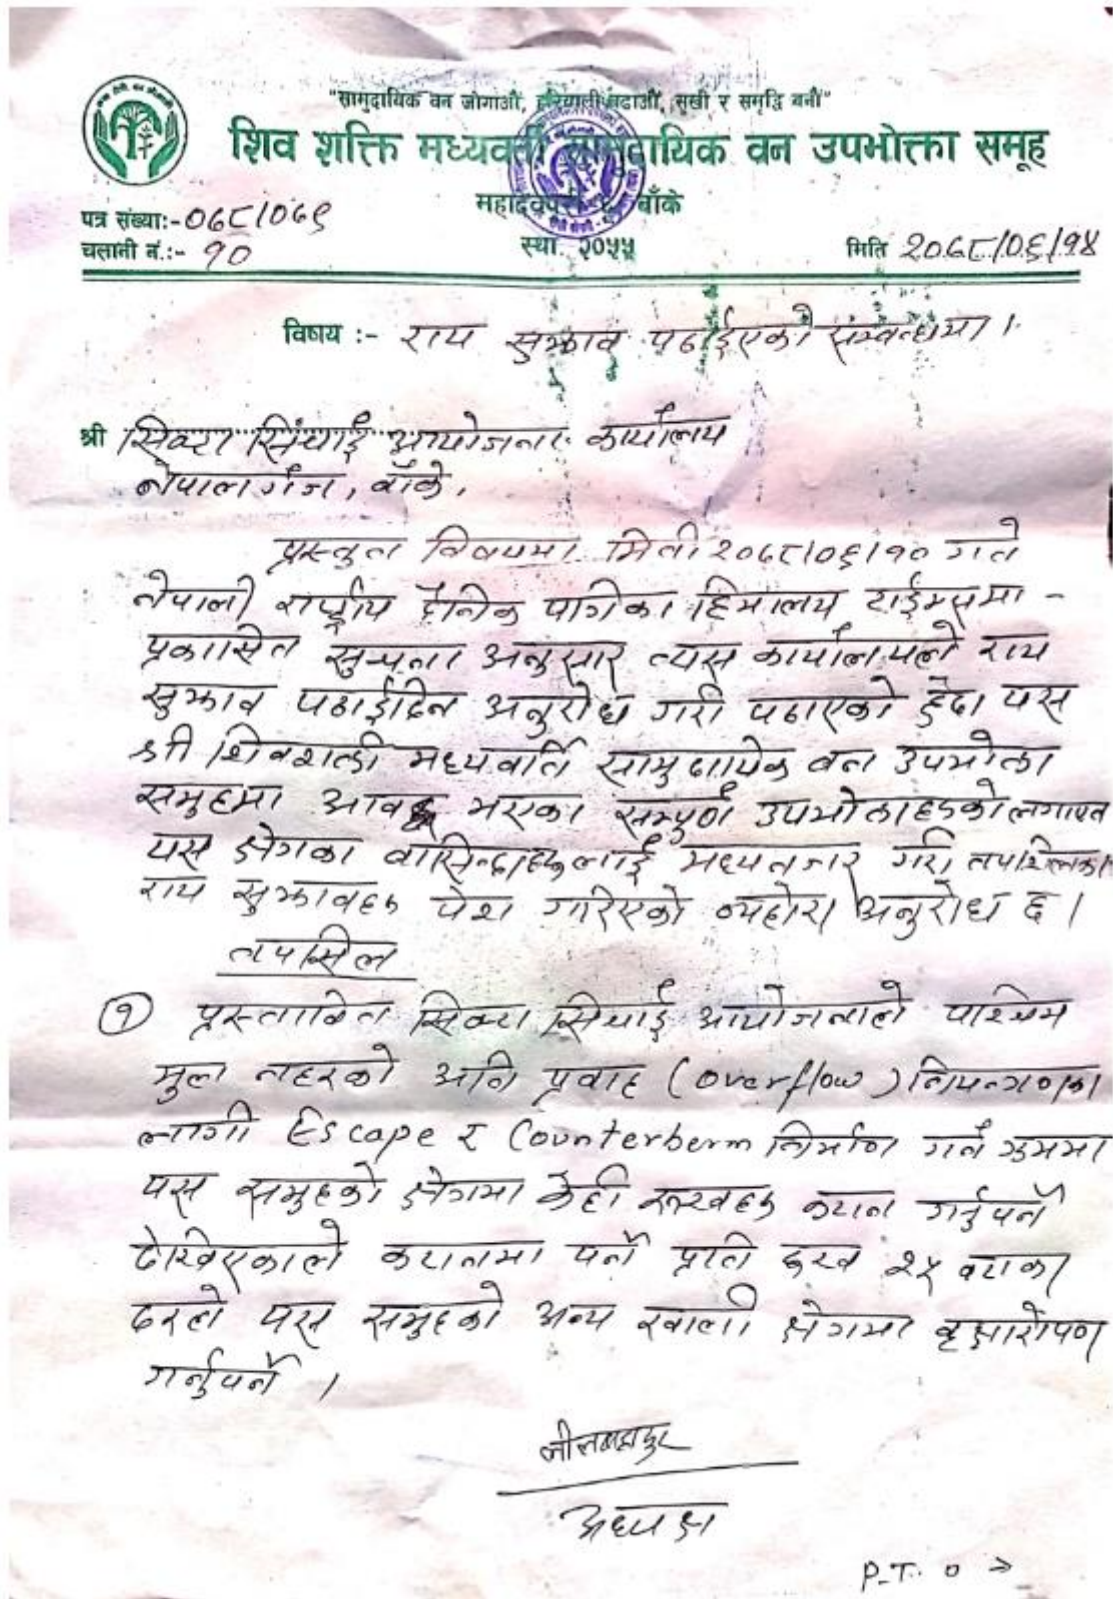 "सामुदायिक वन जोगाऔं, हरियाली बढाऔं, सुखी र समृद्धि बनौं"
शिव शक्ति मध्यवर्ती सामुदायिक वन उपभोक्ता समूह
महादेवपुरी बाँके
पत्र संख्याः-०६८/०६९
स्था. २०५५
चलानी नं.ः- १०
मिति २०६८/०६/१४
विषय :- राय सुझाव पठाईएको सम्वन्धमा।
श्री सिक्टा सिंचाई आयोजना कार्यालय
नेपालगंज, बाँके,
प्रस्तुत विषयमा मिती २०६८/०६/१० गते
नेपाली राष्ट्रीय दैनिक पत्रिका हिमालय टाईम्समा -
प्रकासित सुचना अनुसार त्यस कार्यालयले राय
सुझाव पठाईदिन अनुरोध गरी पठाएको हुँदा यस
श्री शिवशक्ती मध्यवर्ति सामुदायिक वन उपभोक्ता
समुहमा आवद्ध भएका सम्पुर्ण उपभोक्ताहरुको लगायत
यस क्षेत्रका वासिन्दाहरुलाई मध्यनजर गरी तपशिलका
राय सुझावहरु पेश गरिएको व्यहोरा अनुरोध छ।
तपसिल
१ प्रस्तावित सिक्टा सिचाई आयोजनाले पाश्चिम
मुल नहरको अति प्रवाह (overflow) नियन्त्रणका
लागी Escape र Counterberm निर्माण गर्ने क्रममा
यस समुहको क्षेत्रमा केही रुखहरु कटान गर्नुपर्ने
देखिएकाले कटानमा पर्ने प्रति रुख २५ वटाका
दरले यस समुहको अन्य खाली क्षेत्रमा वृक्षारोपण
गर्नुपर्ने।
अध्यक्ष
P.T.O →